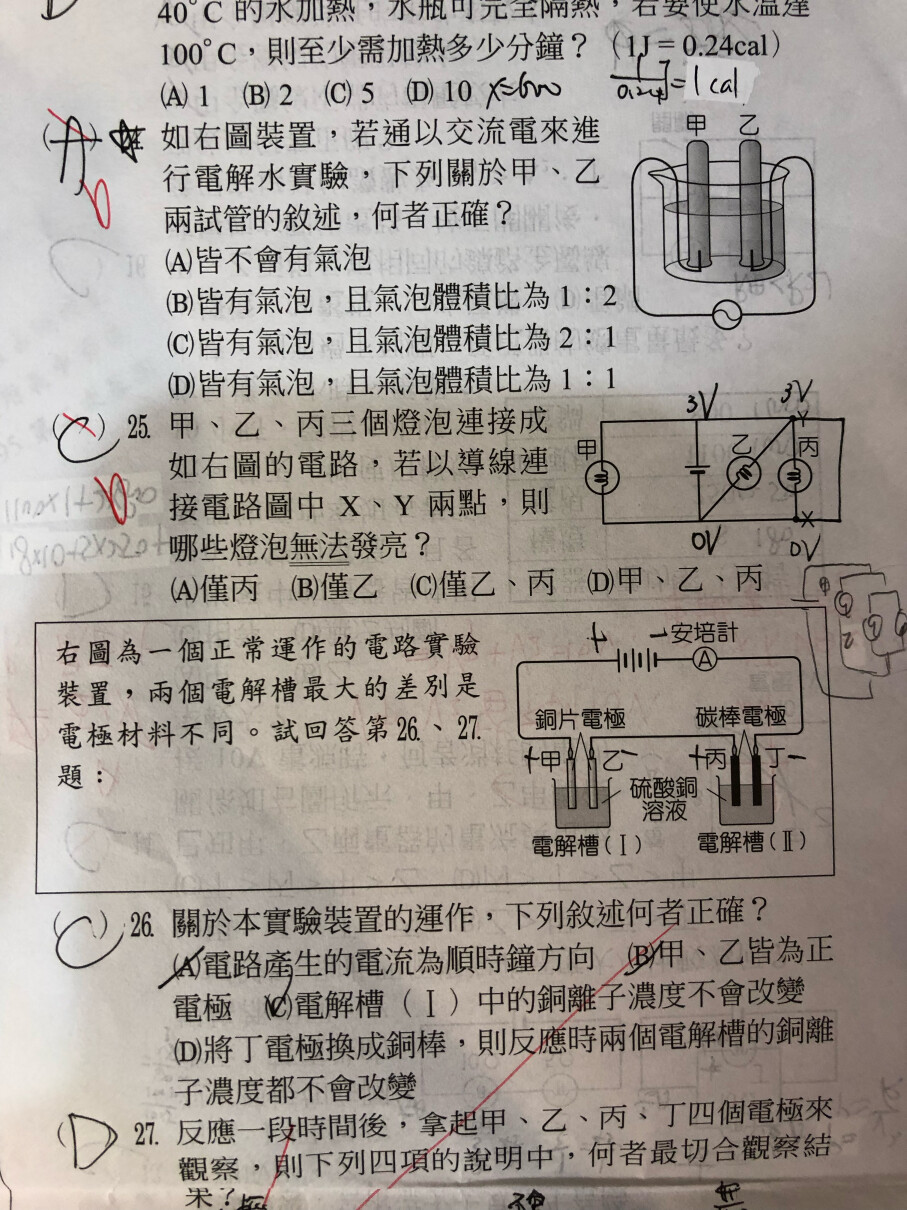 40°C 的水加熱，水瓶可完全隔熱，若要使水溫達
100°C，則至少需加熱多少分鐘？（1J = 0.24cal）
(A) 1 (B) 2 (C) 5 (D) 10 x=600
= 1 cal
如右圖裝置，若通以交流電來進
行電解水實驗，下列關於甲、乙
兩試管的敘述，何者正確？
(A)皆不會有氣泡
(B)皆有氣泡，且氣泡體積比為 1：2
(C)皆有氣泡，且氣泡體積比為 2：1
(D)皆有氣泡，且氣泡體積比為 1：1
甲 乙
D
(C) 25. 甲、乙、丙三個燈泡連接成
如右圖的電路，若以導線連
接電路圖中 X、Y 兩點，則
哪些燈泡無法發亮？
(A)僅丙 (B)僅乙 (C)僅乙、丙 (D)甲、乙、丙
D
3V 3V
Y
甲 乙 丙
X
0V 0V
右圖為一個正常運作的電路實驗
裝置，兩個電解槽最大的差別是
電極材料不同。試回答第26.、27.
題：
+ - 安培計
A
銅片電極 碳棒電極
+甲 乙- +丙 丁-
硫酸銅
溶液
電解槽(Ⅰ) 電解槽(Ⅱ)
(C) 26. 關於本實驗裝置的運作，下列敘述何者正確？
(A)電路產生的電流為順時鐘方向 (B)甲、乙皆為正
電極 (C)電解槽（Ⅰ）中的銅離子濃度不會改變
(D)將丁電極換成銅棒，則反應時兩個電解槽的銅離
子濃度都不會改變
(D) 27. 反應一段時間後，拿起甲、乙、丙、丁四個電極來
觀察，則下列四項的說明中，何者最切合觀察結
果？